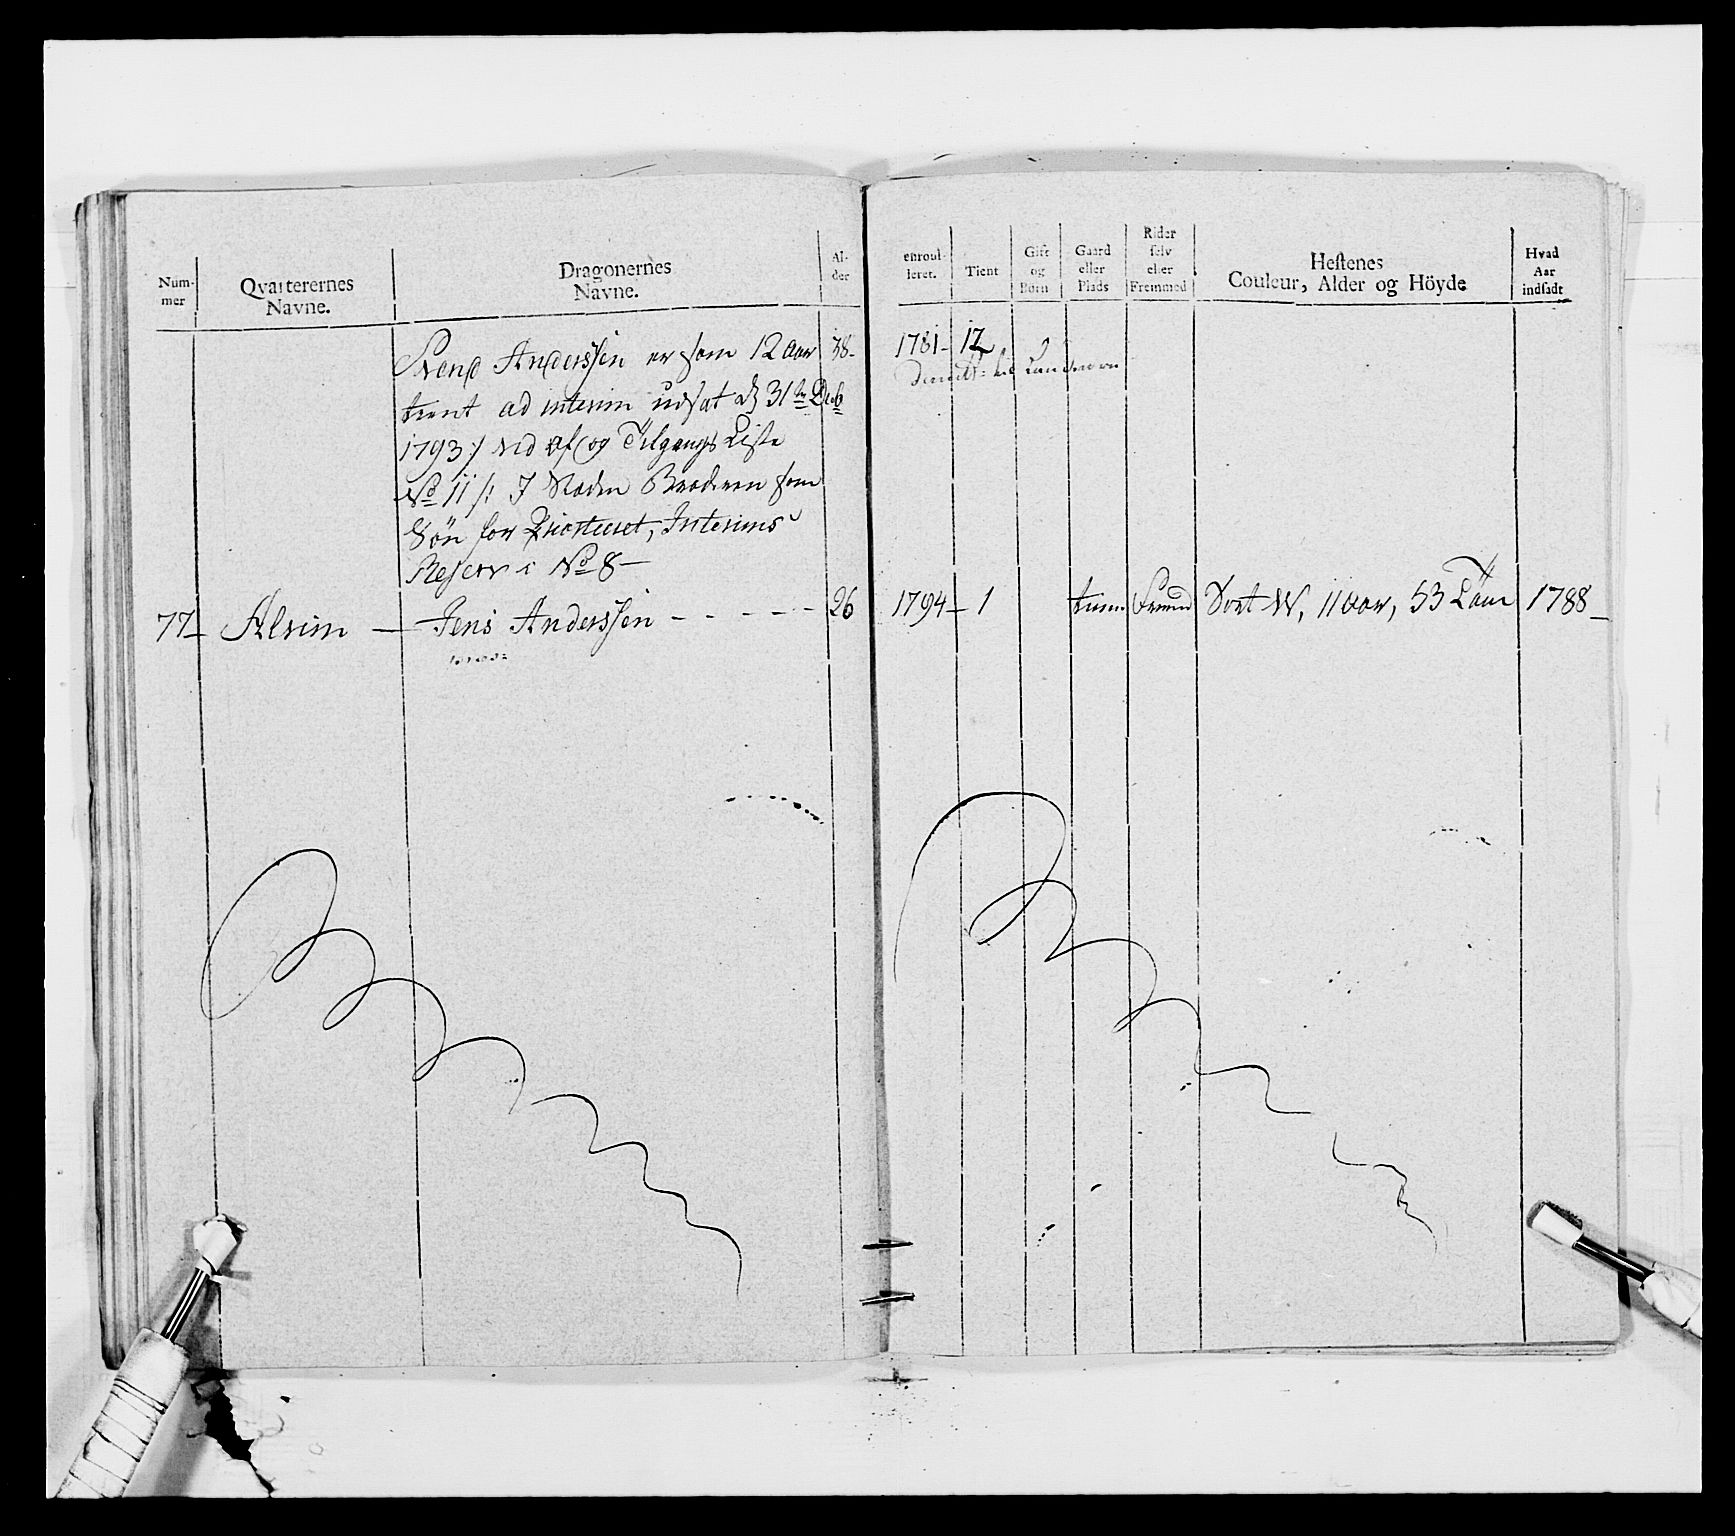 Num-
mer
Qvarterernes
Navne.
Dragonernes
Navne.
Al-
der
enroul-
leret.
Tient
Gift
og
Börn
Gaard
eller
Plads
Rider
selv
eller
Fremmed
Hestenes
Couleur, Alder og Höyde
Hvad
Aar
indsadt
Svend Anderssen er som 12 Aar 38- 1781- 12
tient ad interim udsat d 31te Decb
1793 :/ vid af og Tilgangs Liste
No 11 /: I Broderen som
Sön for Qvarteret, Interims
Reserv i No 8-
77- Alvim - Jens Anderssen - - - - - 26 1794- 1 Fremd Sort W, 11 Aar, 53 Tom 1788-